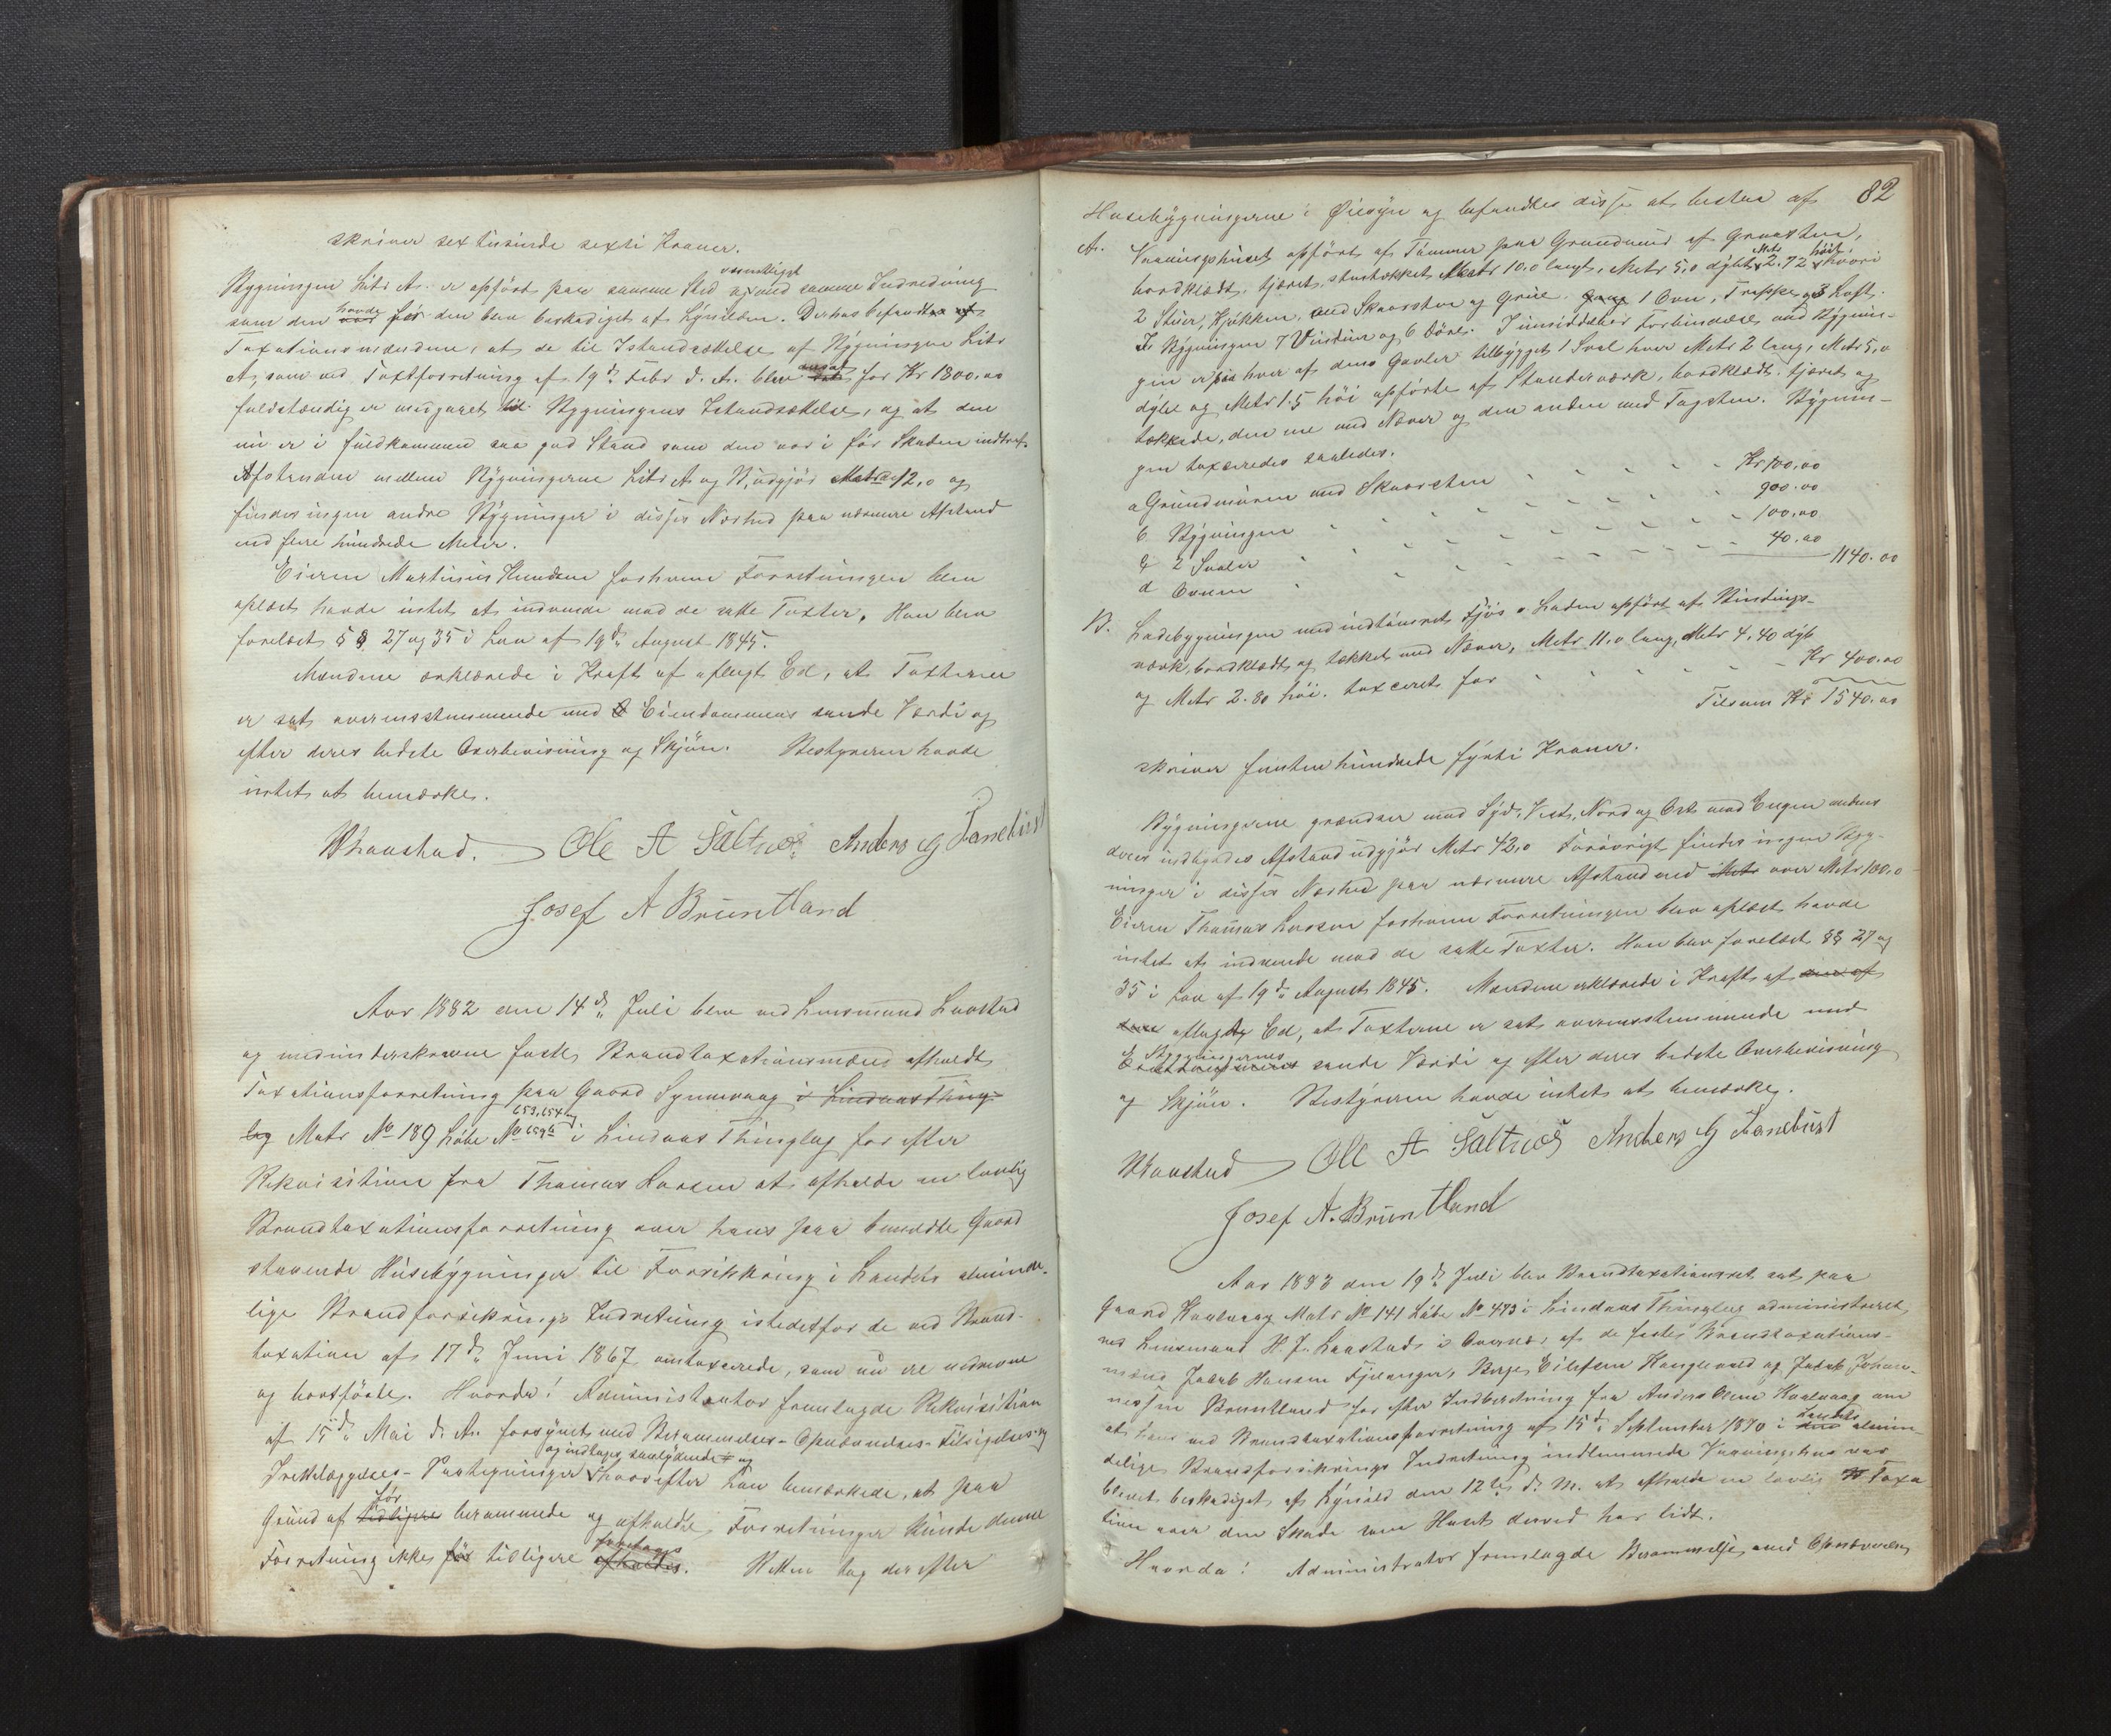 skriver sextusinde sexti Kroner.
Bygningen Litr A. er opført paa samme Sted og med væsentligst samme Indredning
som den havde før den blev beskadiget af Lynilden. Derhos befandtes af
Taxationsmændene, at de til Istandsættelse af Bygningen Litr
A, som ved Taxtforretning af 19de Febr d. A. blev ansat for Kr 1800,00
fuldstændig er medgaaet til Bygningens Istandsættelse, og at den
nu er i fuldkommen saa god Stand som den var i før Skaden indtraf.
Afstanden mellem Bygningerne Litr A og B, udgjør Metr 12,0 og
findes ingen andre Bygninger i disses Nærhed paa nærmere Afstand
end flere hundrede Meter.
Eieren Martinus Knudsen forhvem Forretningen blev
oplæst havde intet at indvende mod de satte Taxter. Han blev
forelæst §§ 27 og 35 i Lov af 19de August 1845.
Mændene erklærede i Kraft af aflagt Ed, at Taxterne
er sat overensstemmende med Eiendommens sande Værdi og
efter deres bedste Overbevisning og Skjøn. Bestyreren havde
intet at bemærke.
Ole A Saltnes Anders G Fanebust
Josef A Bruntland
Aar 1882 den 14de Juli blev ved Lensmand Laastad
og medunderskrevne faste Brandtaxationsmænd afholdt
Taxationsforretning paa Gaard Synnevaag i Lindaas Thing-
lag Matr No 189 Løbe No 653, 654 og 659a i Lindaas Thinglag for efter
Rekvisition fra Thomas Larsen at afholde en lovlig
Brandtaxationsforretning over hans paa bemeldte Gaard
staaende Husebygninger til Forsikkring i Landets alminde-
lige Brandforsikrings Indretning istedetfor de ved Brand-
taxation af 17de Juni 1867 omtaxerede, som nu ere nedrevne
og bortførte. Hvorda! Administrator fremlagde Rekvisition
af 15de Mai d. A. forsynet med Berammelses- Opnævnelses- Tilsigelses- og
Irettelæggelses- Paategninger og indtages saalydende og hvorefter han bemærkede, at paa
Grund af tidligere før berammede og afholdte Forretninger kunde denne
Forretning ikke før tidligere afholdes foretages. Retten tog derefter
82
Husebygningerne i Øiesyn og befandtes disse at bestaa af
A. Vaaningshuset opført af Tømmer paa Grundmur af Graasten,
bordklædt, tjæret, stentækket Metr 10,0 langt, Metr 5,0 dybt, Metr 2.72 høit, hvori
2 Stuer, Kjøkken, med Skorsten og Grue. 1 Ovn, Trappe og 3 Loft.
I Bygningen 7 Vinduer og 6 Døre. I umiddelbar Forbindelse med Bygnin-
gen er paa hver af dens Gavler tilbygget 1 Sval hver Metr 2 lang, Metr 5,0
dybe og Metr 1.5 høi opførte af Stenderværk, bordklædt, tjæret og
tækkede, den ene med Næver og den anden med Tagsten. Bygnin-
gen taxeredes saaledes.
a Grundmuren med Skorsten Kr 100,00
b Bygningen 900.00
c 2 Svaler 100,00
d Ovnen 40.00
1140.00
B. Ladebygningen med indtømret Fjøs o Laden opført af Bindings-
værk, bordklædt og tækket med Næver, Metr 11.0 lang, Metr 4,40 dyb
og Metr 2.80 høi. taxeret for Kr 400,00
Tilsam Kr 1540.00
skriver femtenhundrede fyrti Kroner.
Bygningerne grændser mod Syd, Vest, Nord og Ost mod Engen
deres indbyrdes Afstand udgjør Metr 42,0 Forøvrigt findes ingen Byg-
ninger i disses Nærhed paa nærmere Afstand end Metr over Metr 100.0
Eieren Thomas Larsen forhvem Forretningen blev oplæst havde
intet at indvende mod de satte Taxter. Han blev forelæst §§ 27 og
35 i Lov af 19de August 1845. Mændene erklærede i Kraft af
aflagt Ed, at Taxterne er sat overensstemmende med
Bygningernes sande Værdi og efter deres bedste Overbevisning
og Skjøn. Bestyreren havde intet at bemærke.
Ole A Saltnes Anders G Fanebust
Josef A. Bruntland
Aar 1883 den 19de Juli blev Brandtaxationsret sat paa
Gaard Kvalvaag Matr No 141 Løbe No 473 i Lindaas Thinglag administreret
ved Lensmand H. J. Laastad i Overvær af de faste Brandtaxations-
mænd Jakob Hansen Fjellanger, Børge Eilefsen Hauglevand og Jakob Johan-
nessen Bruntland for efter Indberetning fra Anders Olsen Kvalvaag om
at hans ved Brandtaxationsforretning af 15de September 1870 i Landets almin-
delige Brandforsikrings Indretning indlemmede Vaaningshus var
blevet beskadiget af Lynild den 12te d. M. at afholde en lovlig Taxa-
tion over den Skade som Huset derved har lidt.
Hvorda! Administrator fremlagde Berammelse med Opnævnelse